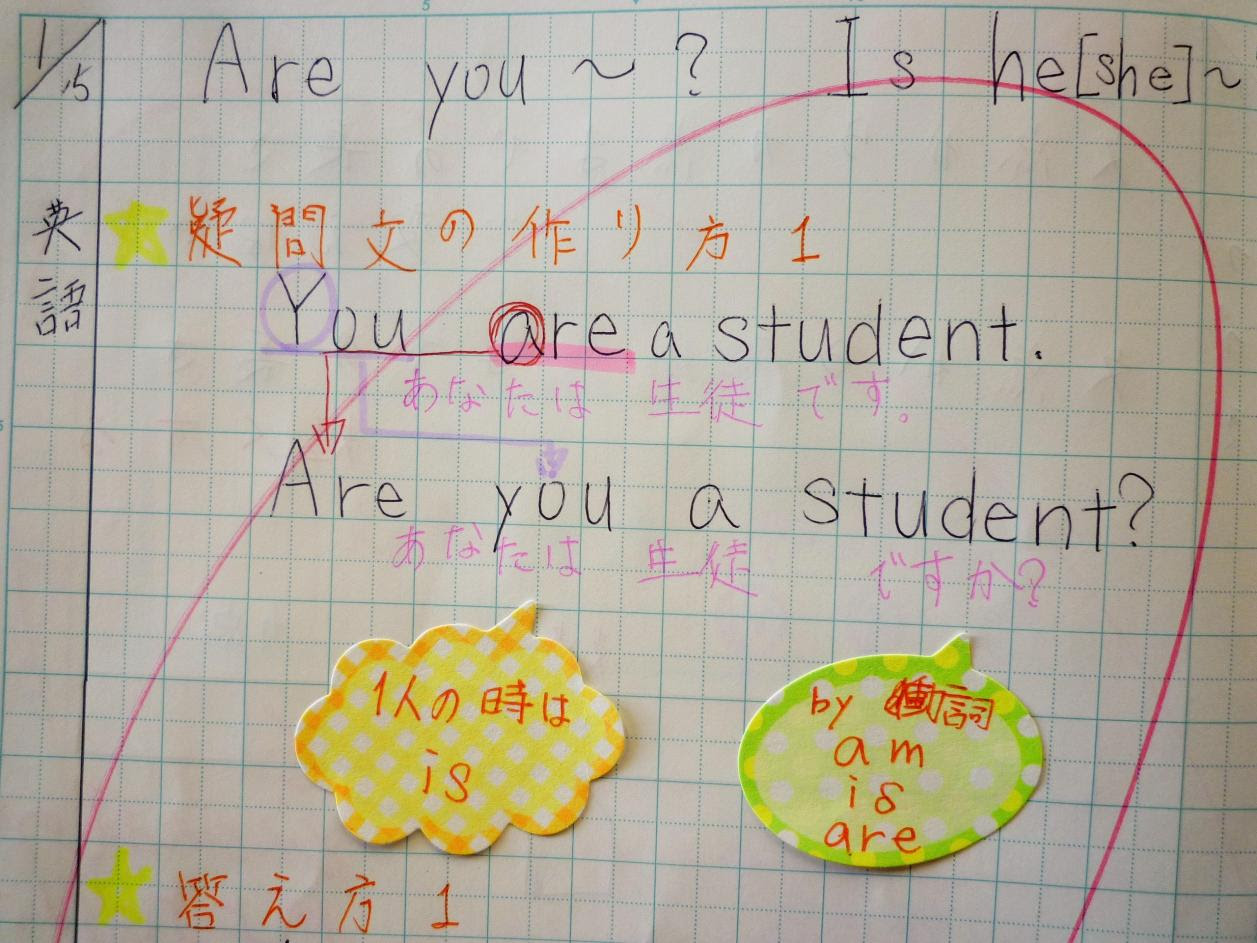 1/15
Are you ～ ? Is he[she]～
英語
疑問文の作り方1
You are a student.
あなたは 生徒 です。
Are you a student?
あなたは 生徒 ですか?
1人の時は
is
by 動詞
am
is
are
答え方1